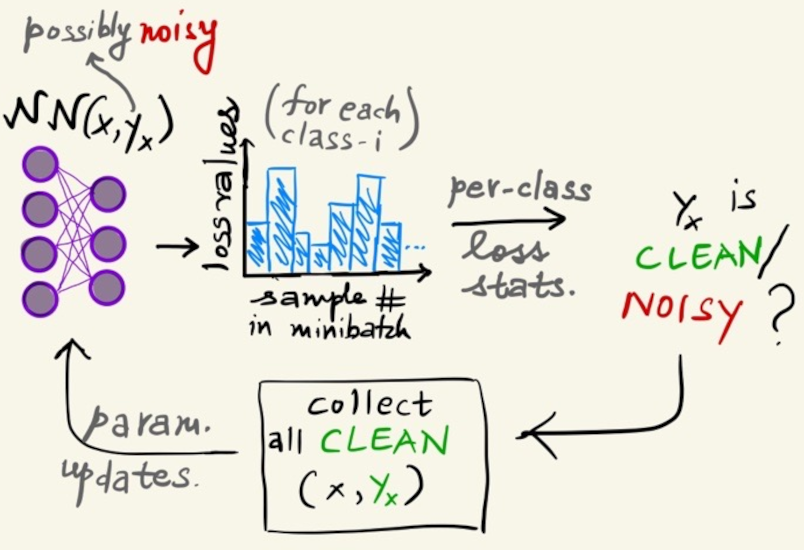 possibly noisy
NN(x,yx)
(for each
class-i)
loss values
sample #
in minibatch
...
per-class
loss
stats.
Yx is
CLEAN/
NOISY ?
collect
all CLEAN
(x,Yx)
param.
updates.